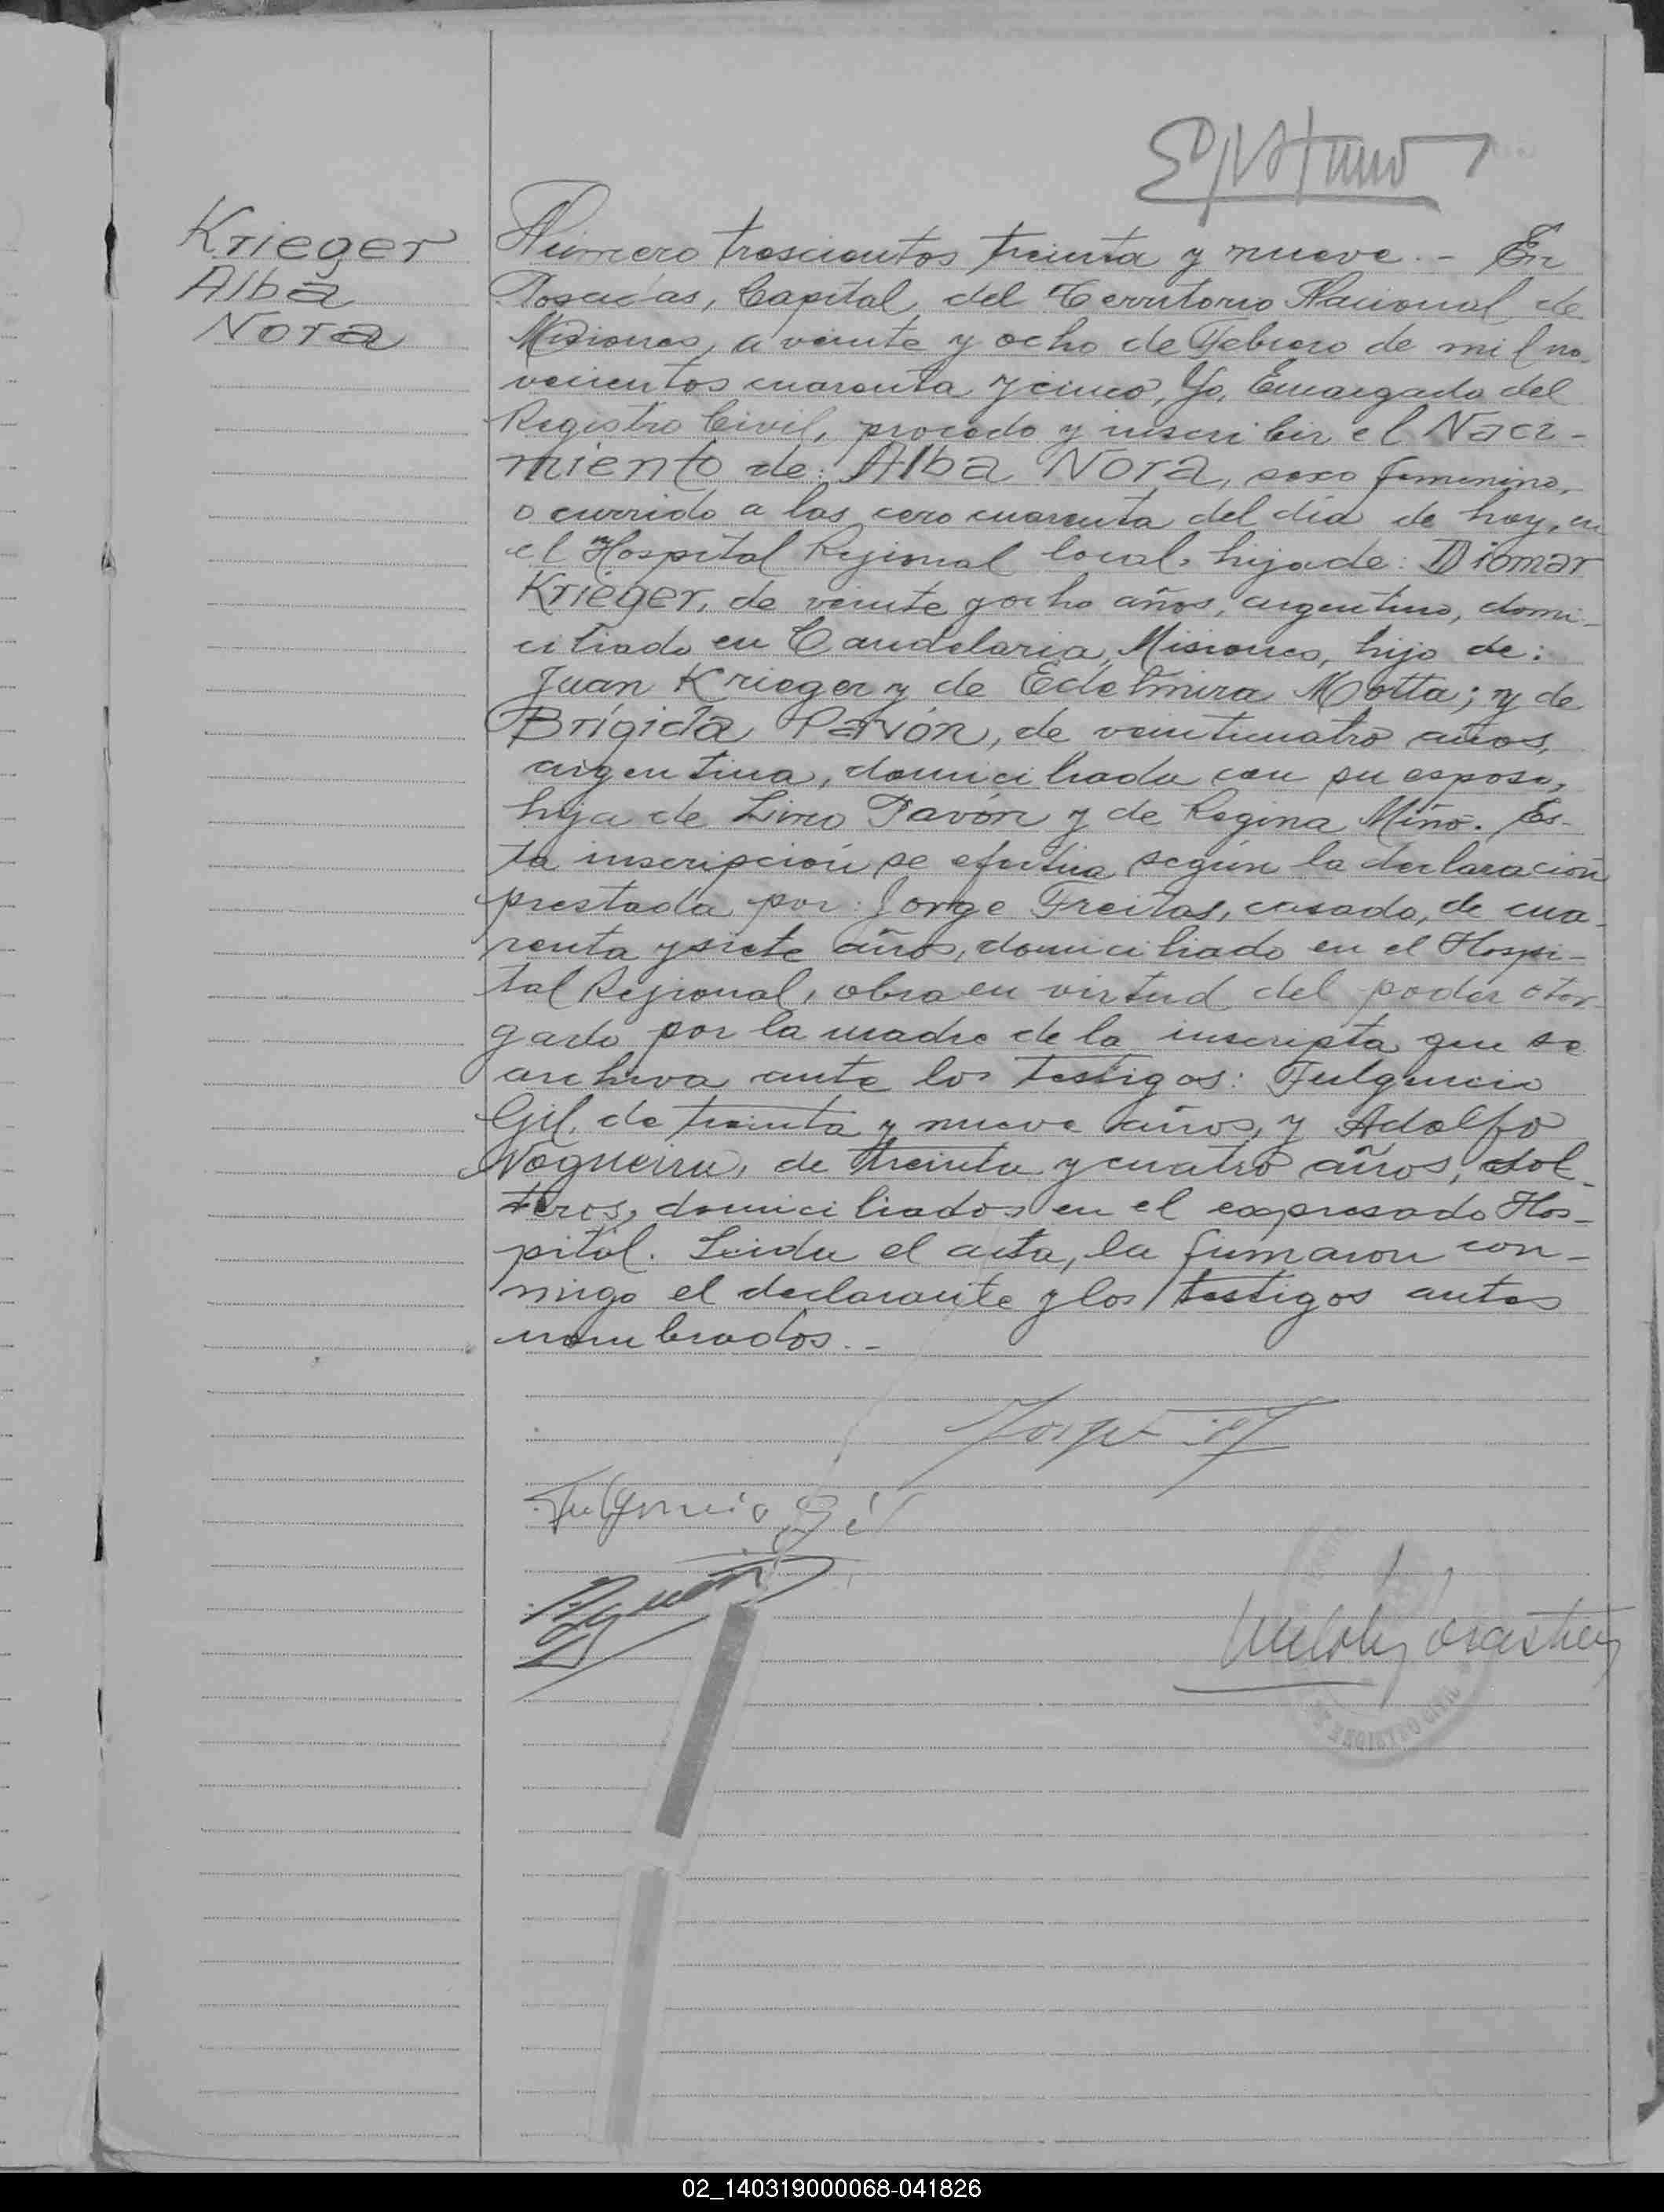 Krieger
Alba
Nora
Número trescientos treinta y nueve.- En
Posadas, Capital del Territorio Nacional de
Misiones, a veinte y ocho de Febrero de mil no-
vecientos cuarenta y cinco, Yo, Encargado del
Registro Civil, procedo y inscribir el Naci-
miento de: Alba Nora, sexo femenino,
ocurrido a las cero cuarenta del día de hoy, en
el Hospital Rejional local, hija de: Diomar
Krieger, de veinte y ocho años, argentino, domi-
ciliado en Candelaria, Misiones, hijo de:
Juan Krieger y de Edelmira Motta; y de
Brígida Pavón, de veinticuatro años,
argentina, domiciliada con su esposo,
hija de Lino Pavón y de Regina Miño. Es-
ta inscripción se efectua según la declaración
prestada por: Jorge Freitas, casado, de cua-
renta y siete años, domiciliado en el Hospi-
tal Rejional, obra en virtud del poder otor-
gado por la madre de la inscripta que se
archiva ante los testigos: Fulgencio
Gil, de treinta y nueve años, y Adolfo
Nogueira, de treinta y cuatro años, sol-
teros, domiciliados en el expresado Hos-
pital. Leida el acta, la firmaron con-
migo el declarante y los testigos antes
nombrados.-
Jorge
Fulgencio Gil
REGISTRO CIVIL
02_140319000068-041826